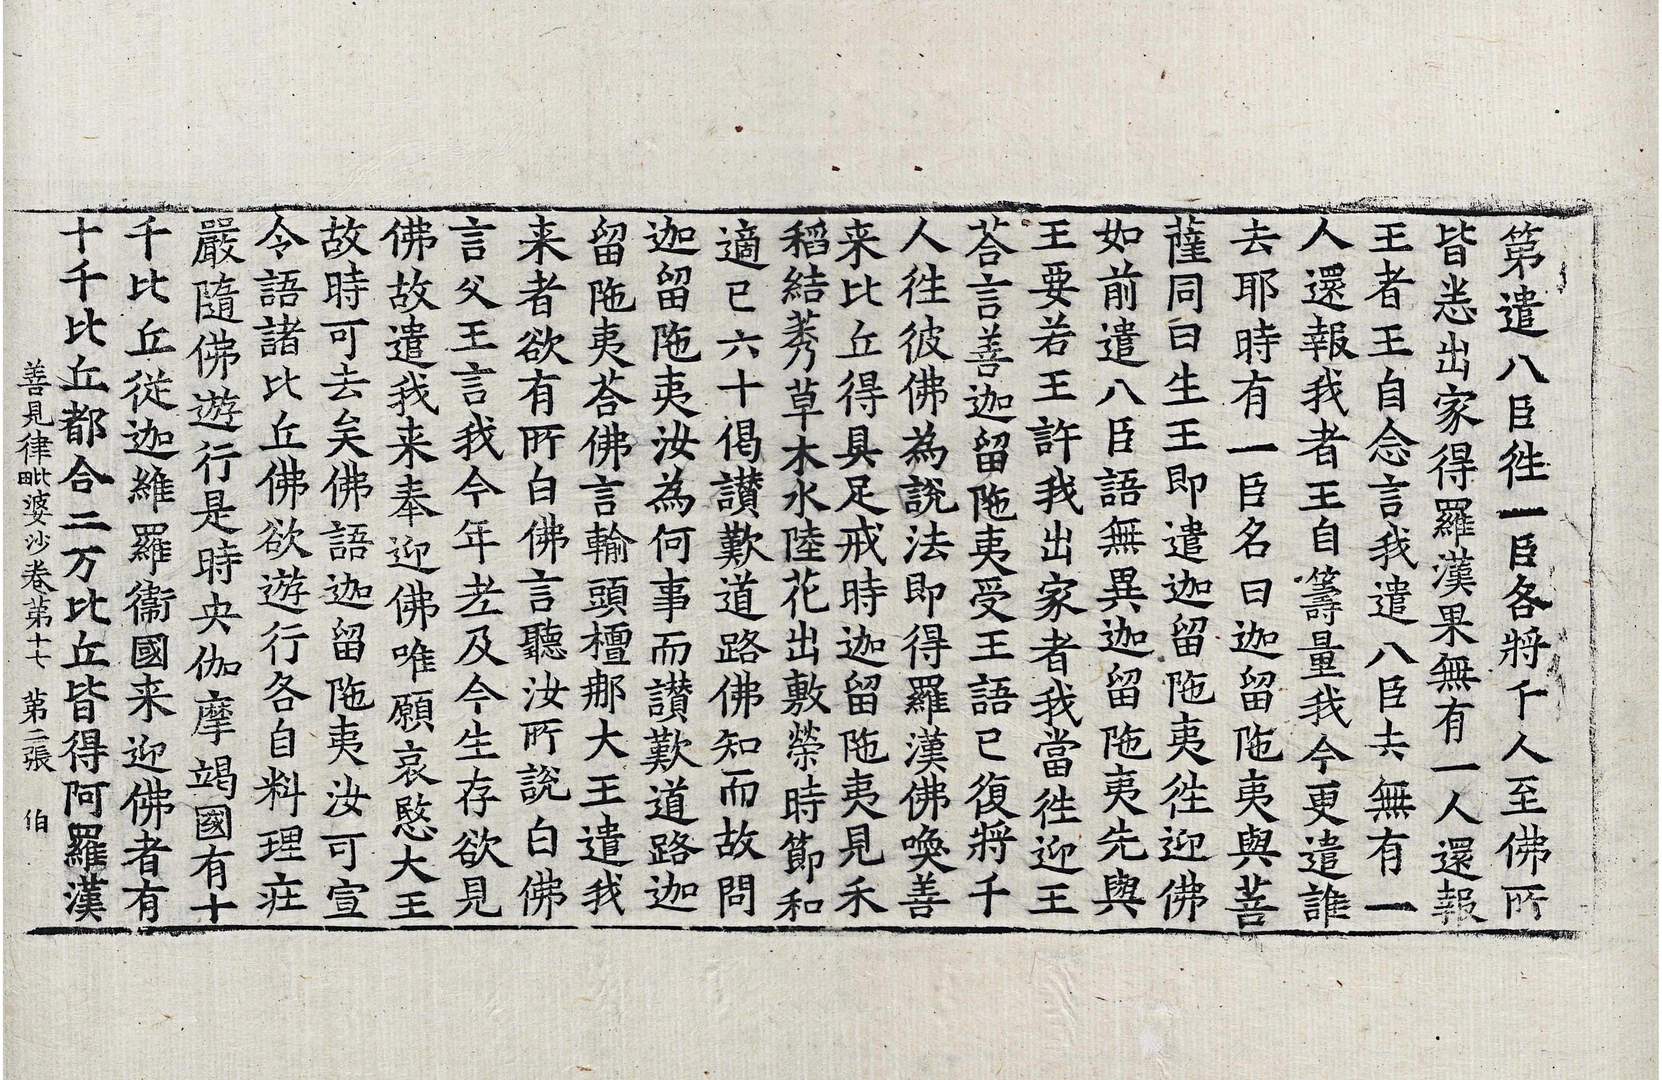 第遣八臣徃一臣各將千人至佛所
皆悉出家得羅漢果無有一人還報
王者王自念言我遣八臣去無有一
人還報我者王自籌量我今更遣誰
去耶時有一臣名曰迦留陁夷與菩
薩同日生王即遣迦留陁夷徃迎佛
如前遣八臣語無異迦留陁夷先與
王要若王許我出家者我當徃迎王
荅言善迦留陁夷受王語已復將千
人徃彼佛為說法即得羅漢佛喚善
来比丘得具足戒時迦留陁夷見禾
稻結莠草木水陸花出敷榮時節和
適已六十偈讃歎道路佛知而故問
迦留陁夷汝為何事而讃歎道路迦
留陁夷荅佛言輸頭檀那大王遣我
来者欲有所白佛言聽汝所說白佛
言父王言我今年老及今生存欲見
佛故遣我来奉迎佛唯願哀愍大王
故時可去矣佛語迦留陁夷汝可宣
令語諸比丘佛欲遊行各自料理莊
嚴隨佛遊行是時央伽摩竭國有十
千比丘從迦維羅衛國来迎佛者有
十千比丘都合二万比丘皆得阿羅漢
善見律毗婆沙卷第十七 第二張 伯